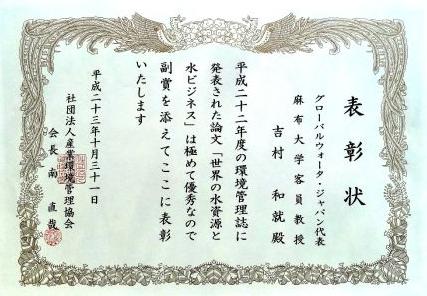 表彰状
グローバルウォータ・ジャパン代表
麻布大学客員教授
吉村 和就殿
平成二十二年度の環境管理誌に
発表された論文「世界の水資源と
水ビジネス」は極めて優秀なので
副賞を添えてここに表彰
いたします
平成二十三年十月三十一日
社団法人産業環境管理協会
会長 南 直哉